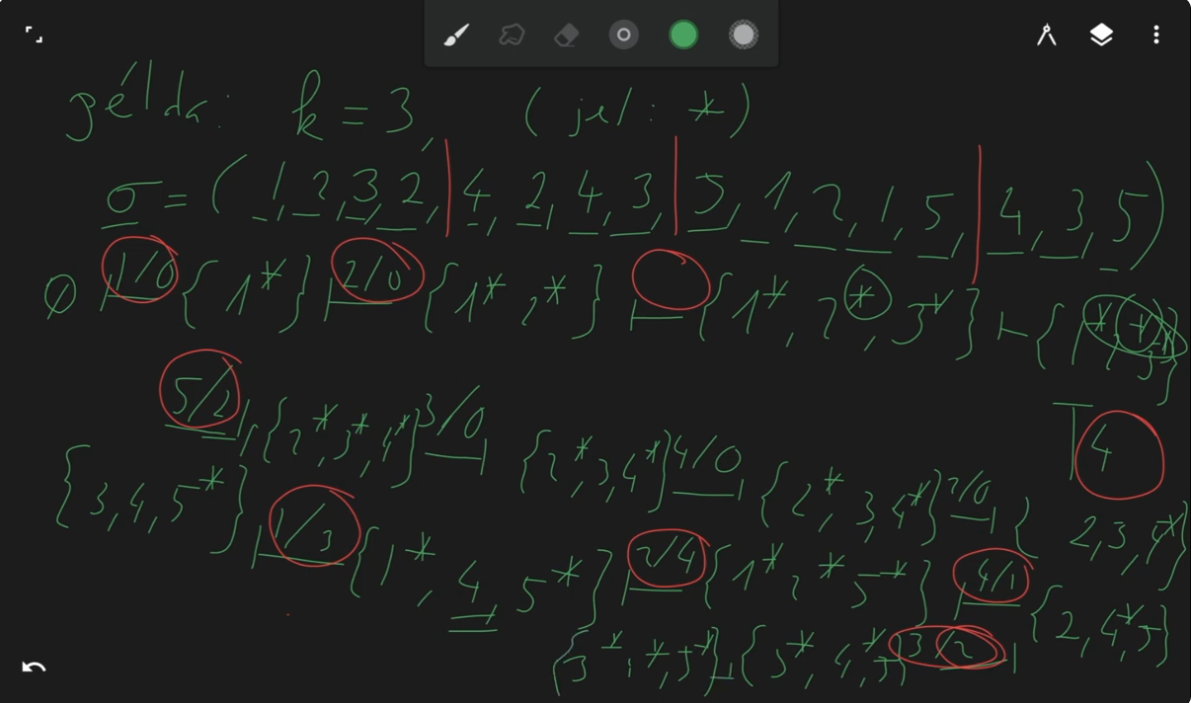 példa: k = 3, (jel: *)
σ = (1, 2, 3, 2, | 4, 2, 4, 3, | 5, 1, 2, 1, 5, | 4, 3, 5)
∅ 1/0 {1*} 2/0 {1*, 2*} ⊢ {1*, 2*, 3*} ⊢ {
5/2 {2*, 3*, 4*} 3/0 {2*, 3, 4*} 4/0 {2*, 3, 4*} 2/0 { 2, 3, 4*} 4
{3, 4, 5*} 1/3 {1*, 4, 5*} 2/4 {1*, 2*, 5*} 4/1 {2, 4*, 5}
{3*, 4*, 5*} {3*, 4, 5} 3/2